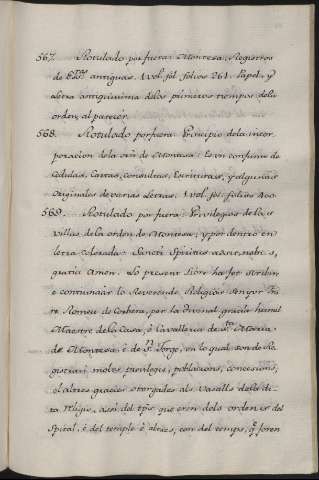 567. Rotulado por fuera: Montesa, Registros
de Esc.ras antiguas. 1 vol. fol. folios 261. Papel, y
letra antiquisima de los primeros tiempos de la
orden, al parecer.
568. Rotulado por fuera: Principio de la incor
poracion de la orn de Montesa. Es un confuso de
Cedulas, Cartas, Consultas, Escrituras, y algunas
originales de varias Letras. 1 vol. fol. folios 400.
569. Rotulado por fuera: Privilegios de las
villas de la orden de Montesa; y por dentro en
letra colorada: Sancti Spiritus assit nobis,
gratia Amen. Lo present Libre ha fet scriure,
e continuaar lo Reverende Religiós Senyor Fra
re Romeu de Corbera, per la divinal gracia humil
Maestre de la Casa, é Cavalleria de S.ta Maria
de Montesa, é de S.t Jorge, en lo qual son de Re
gistrari moles privilegis, poblacions, concessions,
el altres gracies otorgades als Vasalls de la di
ta Religio, axi del tps que eren dels orden es del
Spital, é del temple é altres, com del temps, q.e foren